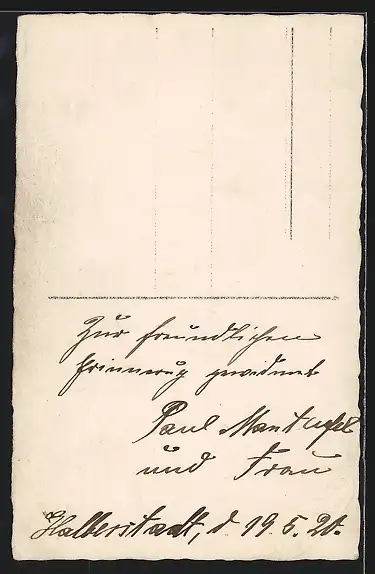 Zur freundlichen
Erinnerung gewidmet
Paul Manteufel
und Frau
Halberstadt, d. 19.5.20.